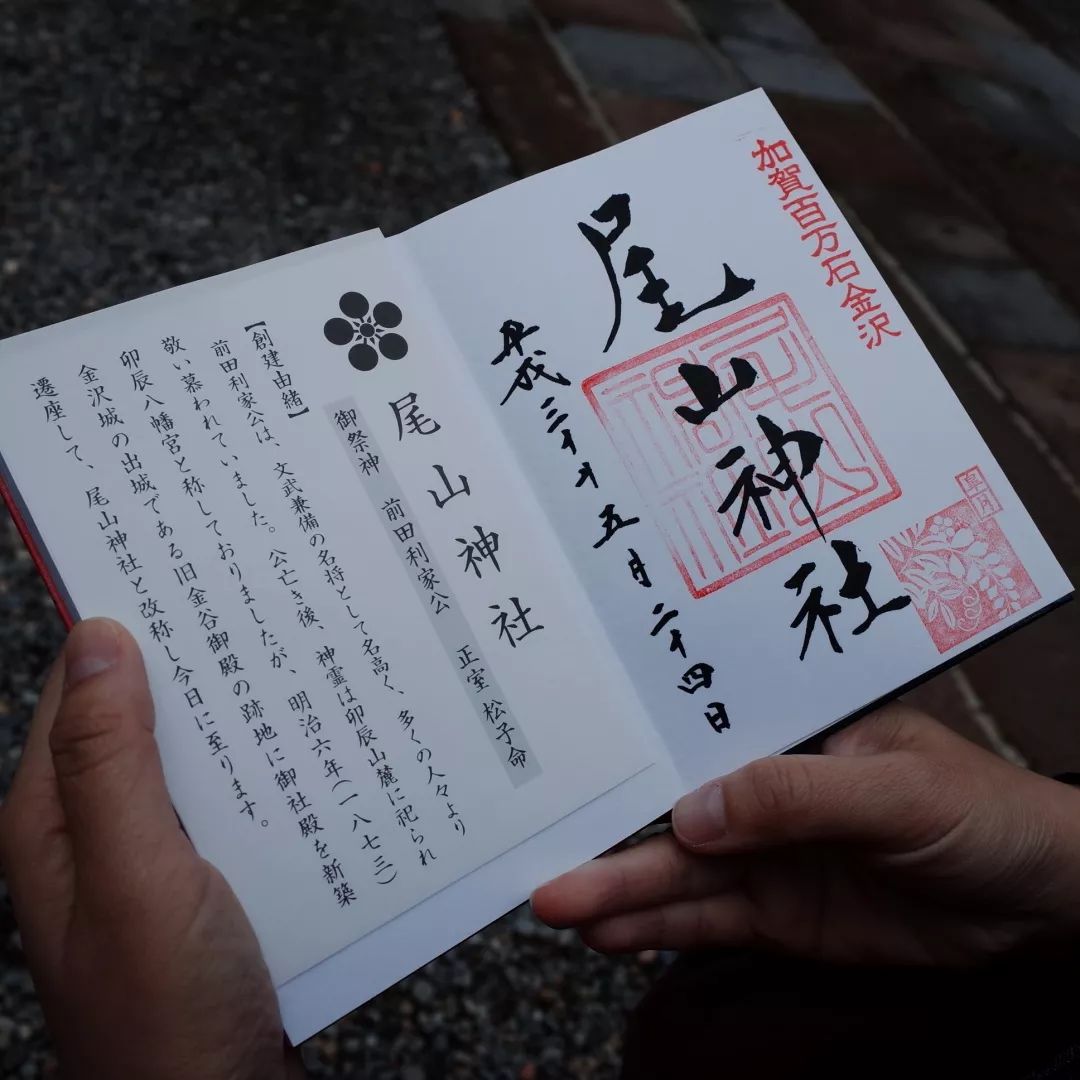 加賀百万石金沢
皐月
尾山神社
尾山
神社
平成三十年五月二十四日
尾山神社
御祭神 前田利家公 正室 松子命
【創建由緒】
前田利家公は、文武兼備の名将として名高く、多くの人々より
敬い慕われていました。公亡き後、神霊は卯辰山麓に祀られ
卯辰八幡宮と称しておりましたが、明治六年(一八七三)
金沢城の出城である旧金谷御殿の跡地に御社殿を新築
遷座して、尾山神社と改称し今日に至ります。